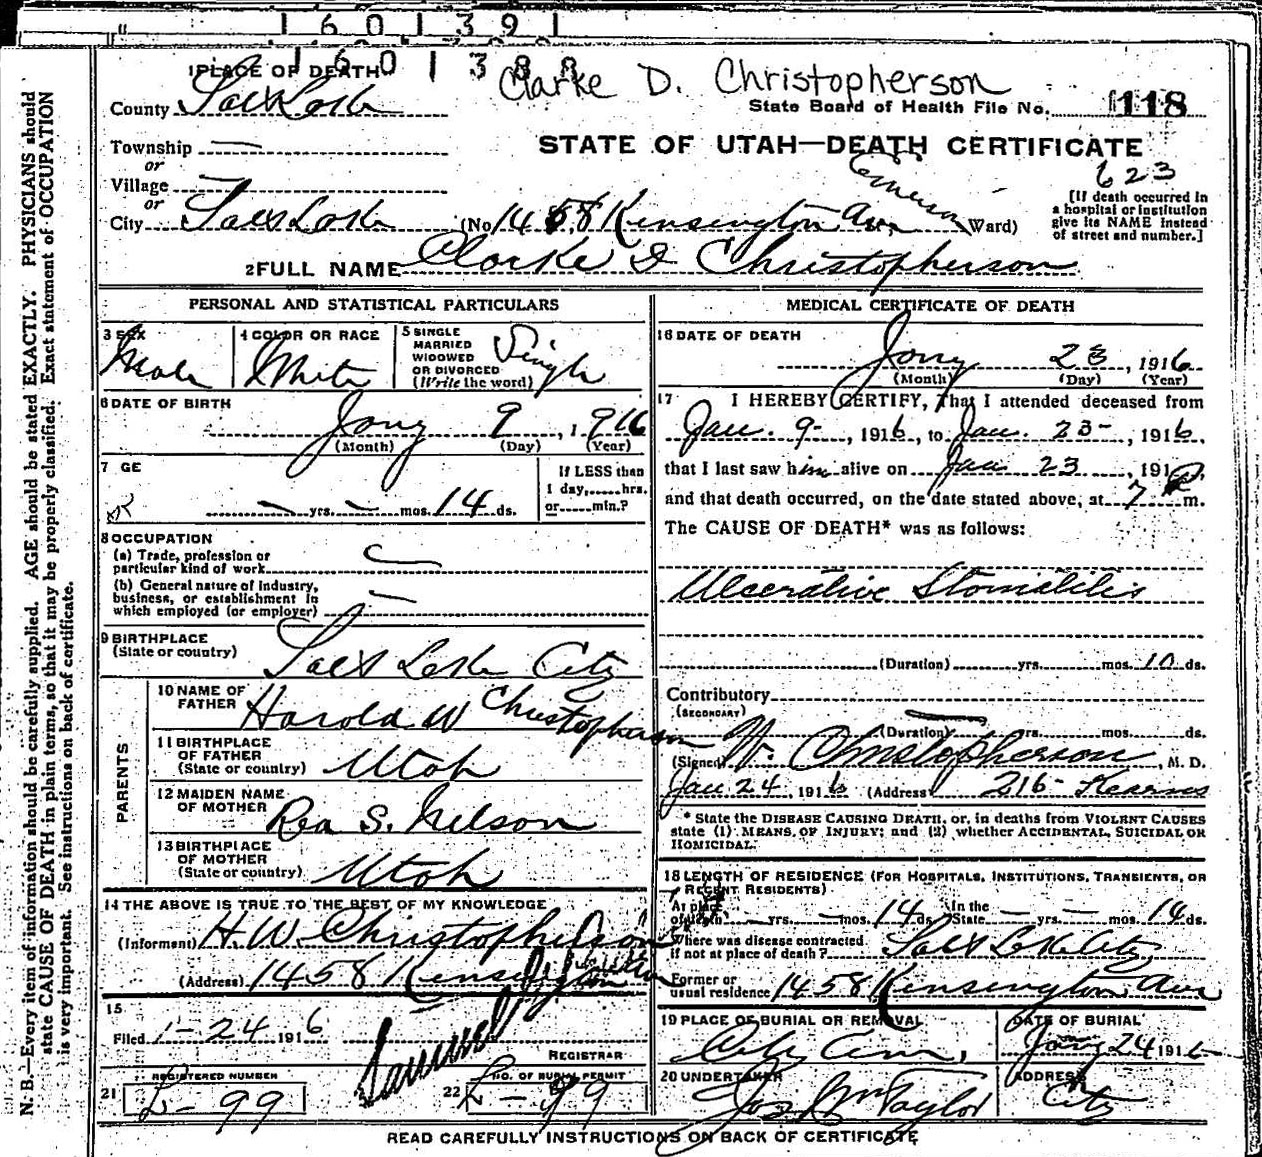 1601391
160138
Clarke D. Christopherson
1 PLACE OF DEATH
County Salt Lake
State Board of Health File No. 118
Township —
or
Village —
or
City Salt Lake (No 1458 Kensington Ave, Emerson Ward)
STATE OF UTAH—DEATH CERTIFICATE
623
[If death occurred in a hospital or institution give its NAME instead of street and number.]
2 FULL NAME Clarke D Christopherson
PERSONAL AND STATISTICAL PARTICULARS
3 SEX Male
4 COLOR OR RACE White
5 SINGLE MARRIED WIDOWED OR DIVORCED (Write the word) Single
6 DATE OF BIRTH
Jany 9, 1916
(Month) (Day) (Year)
7 GE
— yrs. — mos. 14 ds.
If LESS than 1 day,......hrs. or......min.?
8 OCCUPATION
(a) Trade, profession or particular kind of work —
(b) General nature of industry, business, or establishment in which employed (or employer) —
9 BIRTHPLACE
(State or country) Salt Lake City
PARENTS
10 NAME OF FATHER Harold W Christopherson
11 BIRTHPLACE OF FATHER (State or country) Utah
12 MAIDEN NAME OF MOTHER Rea S. Nelson
13 BIRTHPLACE OF MOTHER (State or country) Utah
14 THE ABOVE IS TRUE TO THE BEST OF MY KNOWLEDGE
(Informant) H. W. Christopherson
(Address) 1458 Kensington
15
Filed 1-24 1916
REGISTRAR
REGISTERED NUMBER
21 L-99
NO. OF BURIAL PERMIT
22 L-99
MEDICAL CERTIFICATE OF DEATH
16 DATE OF DEATH
Jany 23, 1916
(Month) (Day) (Year)
17 I HEREBY CERTIFY, That I attended deceased from
Jan. 9-, 1916, to Jan. 23-, 1916,
that I last saw him alive on Jan 23, 191
and that death occurred, on the date stated above, at 7 P m.
The CAUSE OF DEATH* was as follows:
Ulcerative Stomatitis
(Duration) yrs. mos. 10 ds.
Contributory
(SECONDARY)
(Duration) yrs. mos. ds.
(Signed) W. Christopherson, M. D.
Jan 24, 1916 (Address) 216- Kearns
* State the DISEASE CAUSING DEATH, or, in deaths from VIOLENT CAUSES state (1) MEANS OF INJURY; and (2) whether ACCIDENTAL, SUICIDAL OR HOMICIDAL.
18 LENGTH OF RESIDENCE (FOR HOSPITALS, INSTITUTIONS, TRANSIENTS, OR RECENT RESIDENTS)
At place of death — yrs. — mos. 14 ds. In the State — yrs. — mos. 14 ds.
Where was disease contracted if not at place of death? Salt Lake City
Former or usual residence 1458 Kensington Ave
19 PLACE OF BURIAL OR REMOVAL City Cem.
DATE OF BURIAL Jany 24 1916
20 UNDERTAKER Jos Wm Taylor
ADDRESS City
READ CAREFULLY INSTRUCTIONS ON BACK OF CERTIFICATE
N. B.—Every item of information should be carefully supplied. AGE should be stated EXACTLY. PHYSICIANS should
state CAUSE OF DEATH in plain terms, so that it may be properly classified. Exact statement of OCCUPATION
is very important. See instructions on back of certificate.